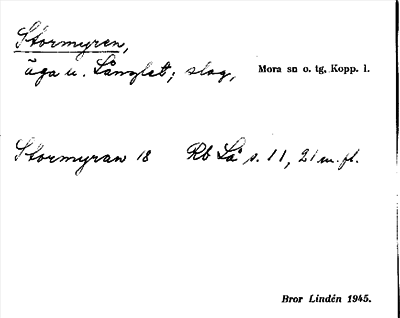 Stormyren,
äga u. Långlet; slog, Mora sn o. tg, Kopp. l.
Stormyran 18 Rb Lå s. 11, 21 m. fl.
Bror Lindén 1945.